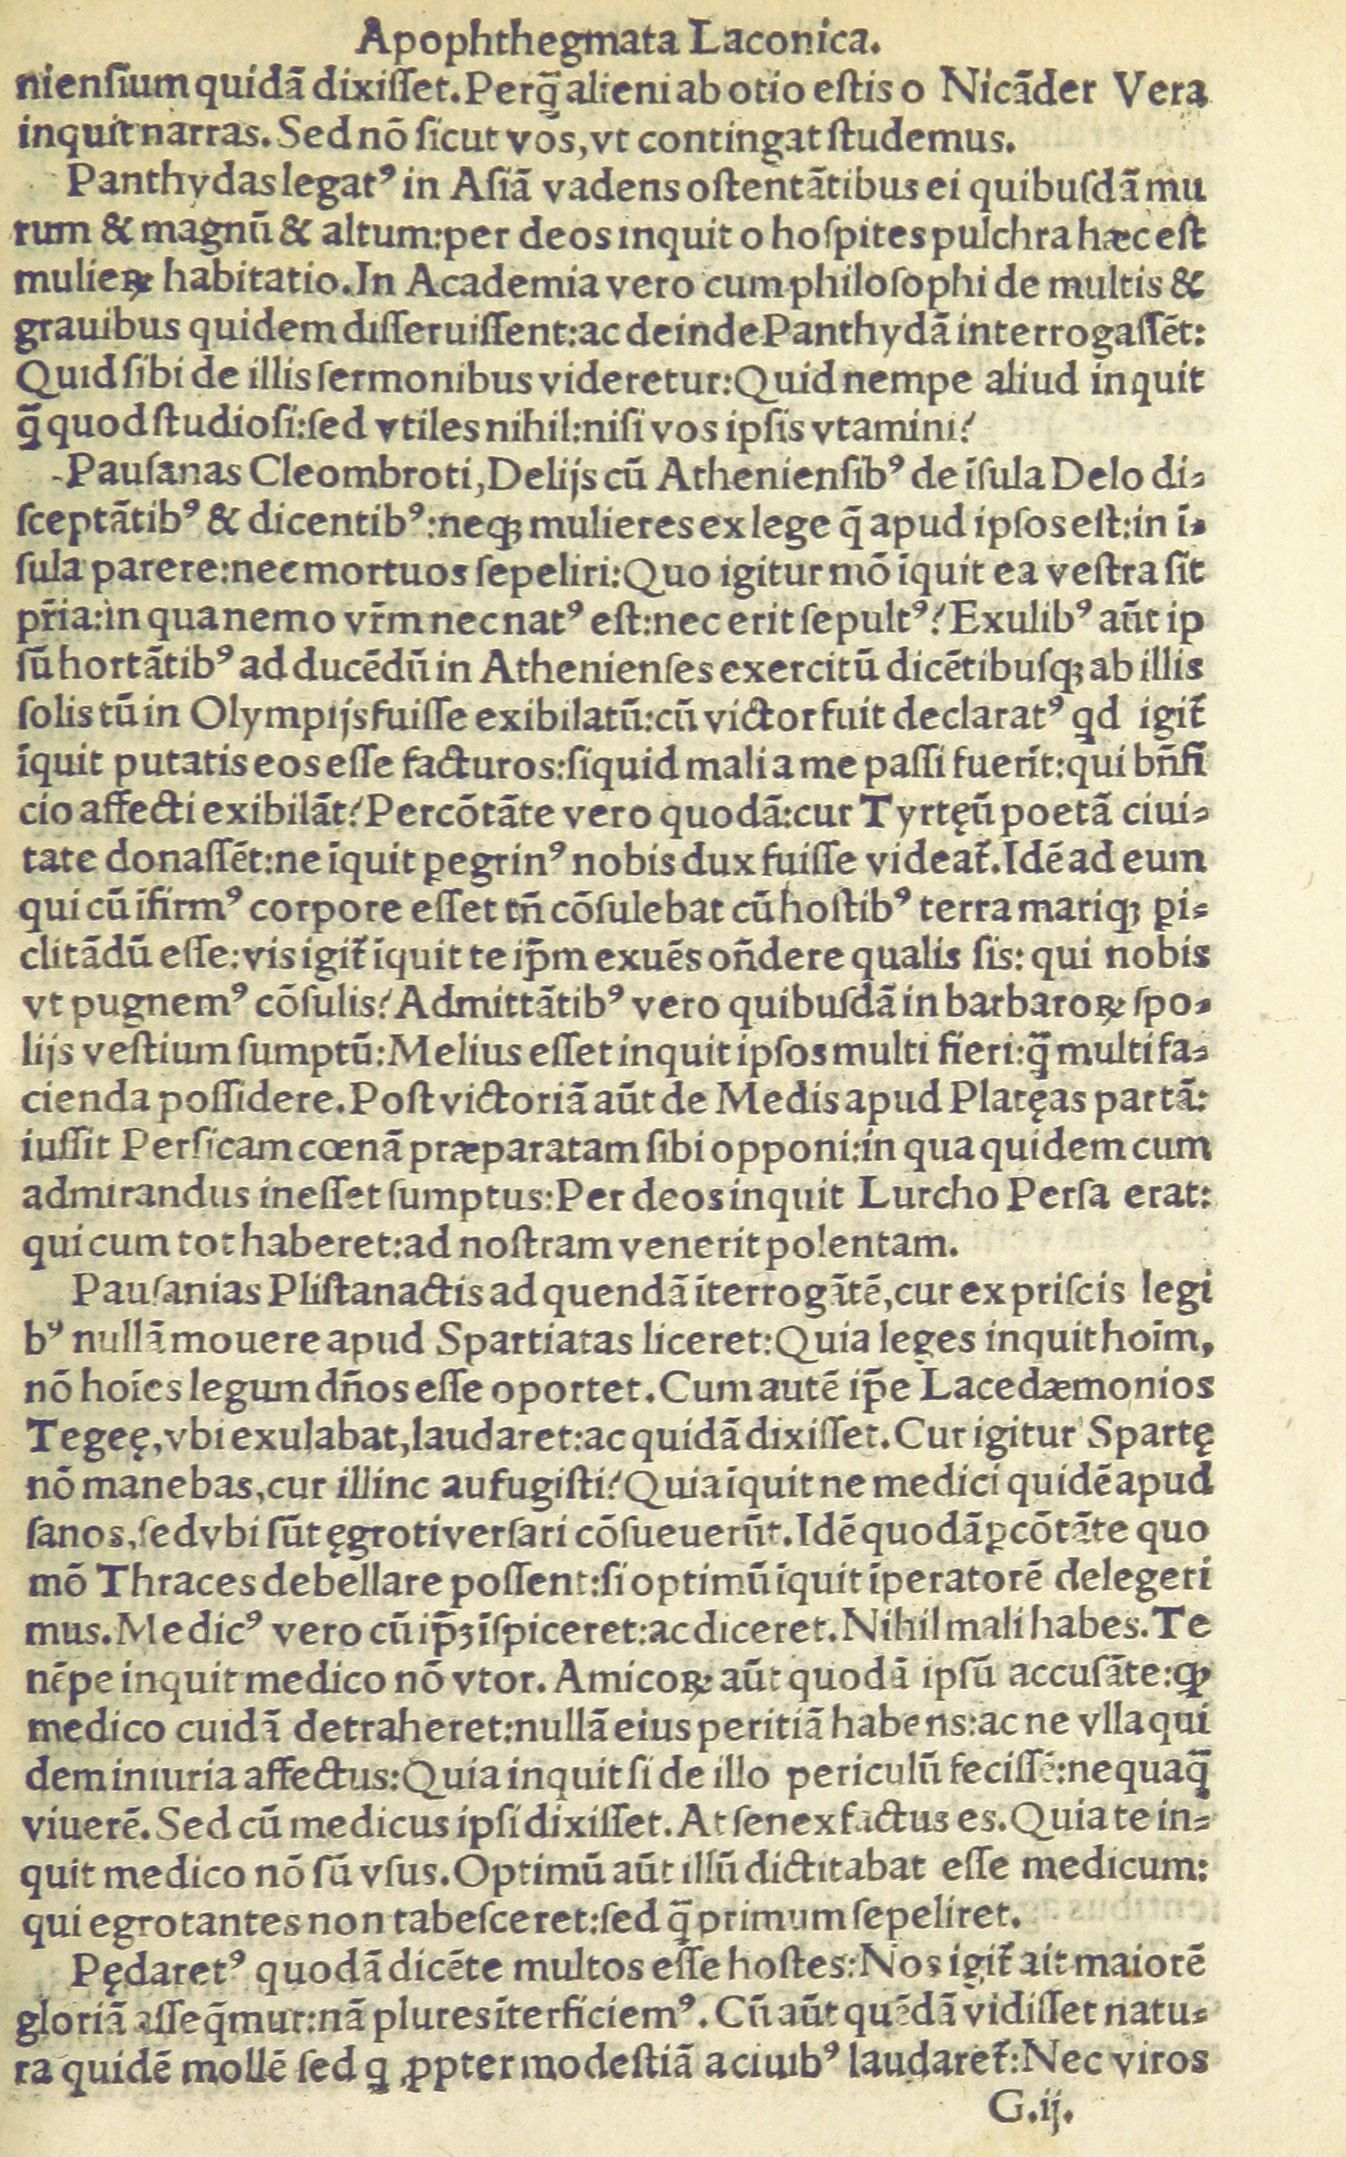 Apophthegmata Laconica.
nienſium quidā dixiſſet. Perq̄ alieni ab otio eſtis o Nicāder Vera
inquit narras. Sed nō ſicut vos, vt contingat ſtudemus.
Panthydas legatꝰ in Aſiā vadens oſtentātibus ei quibuſdā mu
rum & magnū & altum: per deos inquit o hoſpites pulchra hæc eſt
mulieꝝ habitatio. In Academia vero cum philoſophi de multis &
grauibus quidem diſſeruiſſent: ac deinde Panthydā interrogaſſēt:
Quid ſibi de illis ſermonibus videretur: Quid nempe aliud inquit
q̄ quod ſtudioſi: ſed vtiles nihil: niſi vos ipſis vtamini?
Pauſanas Cleombroti, Delijs cū Athenienſibꝰ de īſula Delo di⸗
ſceptātibꝰ & dicentibꝰ: neqꝫ mulieres ex lege q̄ apud ipſos eſt: in ī⸗
ſula parere: nec mortuos ſepeliri: Quo igitur mō īquit ea veſtra ſit
pr̄ia: in qua nemo vr̄m nec natꝰ eſt: nec erit ſepultꝰ? Exulibꝰ aūt ip
ſū hortātibꝰ ad ducēdū in Athenienſes exercitū dicētibuſqꝫ ab illis
ſolis tū in Olympijs fuiſſe exibilatū: cū victor fuit declaratꝰ qd igit̄
īquit putatis eos eſſe facturos: ſiquid mali a me paſſi fuerīt: qui bn̄fi
cio affecti exibilāt? Percōtāte vero quodā: cur Tyrtęū poetā ciui⸗
tate donaſſēt: ne īquit ꝑegrinꝰ nobis dux fuiſſe videat̄. Idē ad eum
qui cū īfirmꝰ corpore eſſet tn̄ cōſulebat cū hoſtibꝰ terra mariqꝫ ꝑi⸗
clitādū eſſe: vis igit̄ īquit te ip̄m exuēs on̄dere qualis ſis: qui nobis
vt pugnemꝰ cōſulis? Admittātibꝰ vero quibuſdā in barbaroꝝ ſpo⸗
lijs veſtium ſumptū: Melius eſſet inquit ipſos multi fieri: q̄ multi fa⸗
cienda poſſidere. Poſt victoriā aūt de Medis apud Platęas partā:
iuſſit Perſicam cœnā præparatam ſibi opponi: in qua quidem cum
admirandus ineſſet ſumptus: Per deos inquit Lurcho Perſa erat:
qui cum tot haberet: ad noſtram venerit polentam.
Pauſanias Pliſtanactis ad quendā īterrogātē, cur ex priſcis legi
bꝰ nullā mouere apud Spartiatas liceret: Quia leges inquit hoīm,
nō hoīes legum dn̄os eſſe oportet. Cum autē ip̄e Lacedæmonios
Tegeę, vbi exulabat, laudaret: ac quidā dixiſſet. Cur igitur Spartę
nō manebas, cur illinc aufugiſti? Quia īquit ne medici quidē apud
ſanos, ſed vbi ſūt ęgroti verſari cōſueuerūt. Idē quodā ꝑcōtāte quo
mō Thraces debellare poſſent: ſi optimū īquit īperatorē delegeri
mus. Medicꝰ vero cū ip̄ꝫ īſpiceret: ac diceret. Nihil mali habes. Te
nēpe inquit medico nō vtor. Amicoꝝ aūt quodā ipſū accuſāte: ꝙ
medico cuidā detraheret: nullā eius peritiā habens: ac ne vlla qui
dem iniuria affectus: Quia inquit ſi de illo periculū feciſſē: nequaq̄
viuerē. Sed cū medicus ipſi dixiſſet. At ſenex factus es. Quia te in⸗
quit medico nō ſū vſus. Optimū aūt illū dictitabat eſſe medicum:
qui egrotantes non tabeſceret: ſed q̄ primum ſepeliret.
Pędaretꝰ quodā dicēte multos eſſe hoſtes: Nos igit̄ ait maiorē
gloriā aſſeq̄mur: nā plures īterficiemꝰ. Cū aūt quēdā vidiſſet natu⸗
ra quidē mollē ſed ꝗ ꝓpter modeſtiā a ciuibꝰ laudaret̄: Nec viros
G.ij.